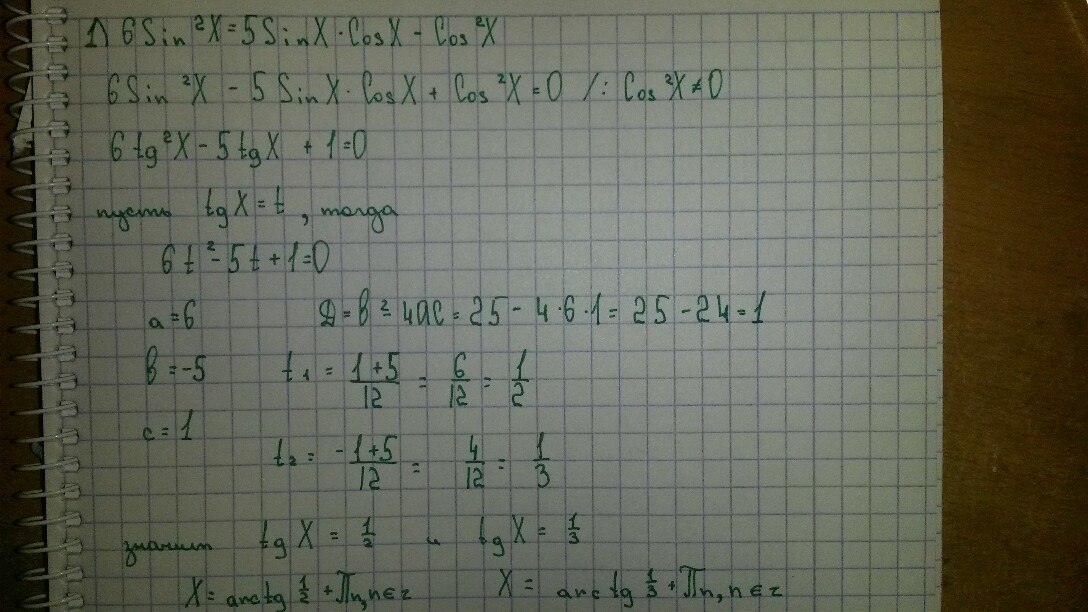 1) 6Sin²X=5SinX·CosX - Cos²X
6Sin²X - 5SinX·CosX + Cos²X=0 /: Cos²X≠0
6tg²X-5tgX +1=0
пусть tgX=t, тогда
6t²-5t+1=0
a=6 D=b²-4ac=25-4·6·1=25-24=1
b=-5 t₁ = (1+5)/12 = 6/12 = 1/2
c=1
t₂ = (-1+5)/12 = 4/12 = 1/3
значит tgX = 1/2 и tgX = 1/3
X=arctg 1/2 +Πn,n∈z X= arctg 1/3 +Πn,n∈z